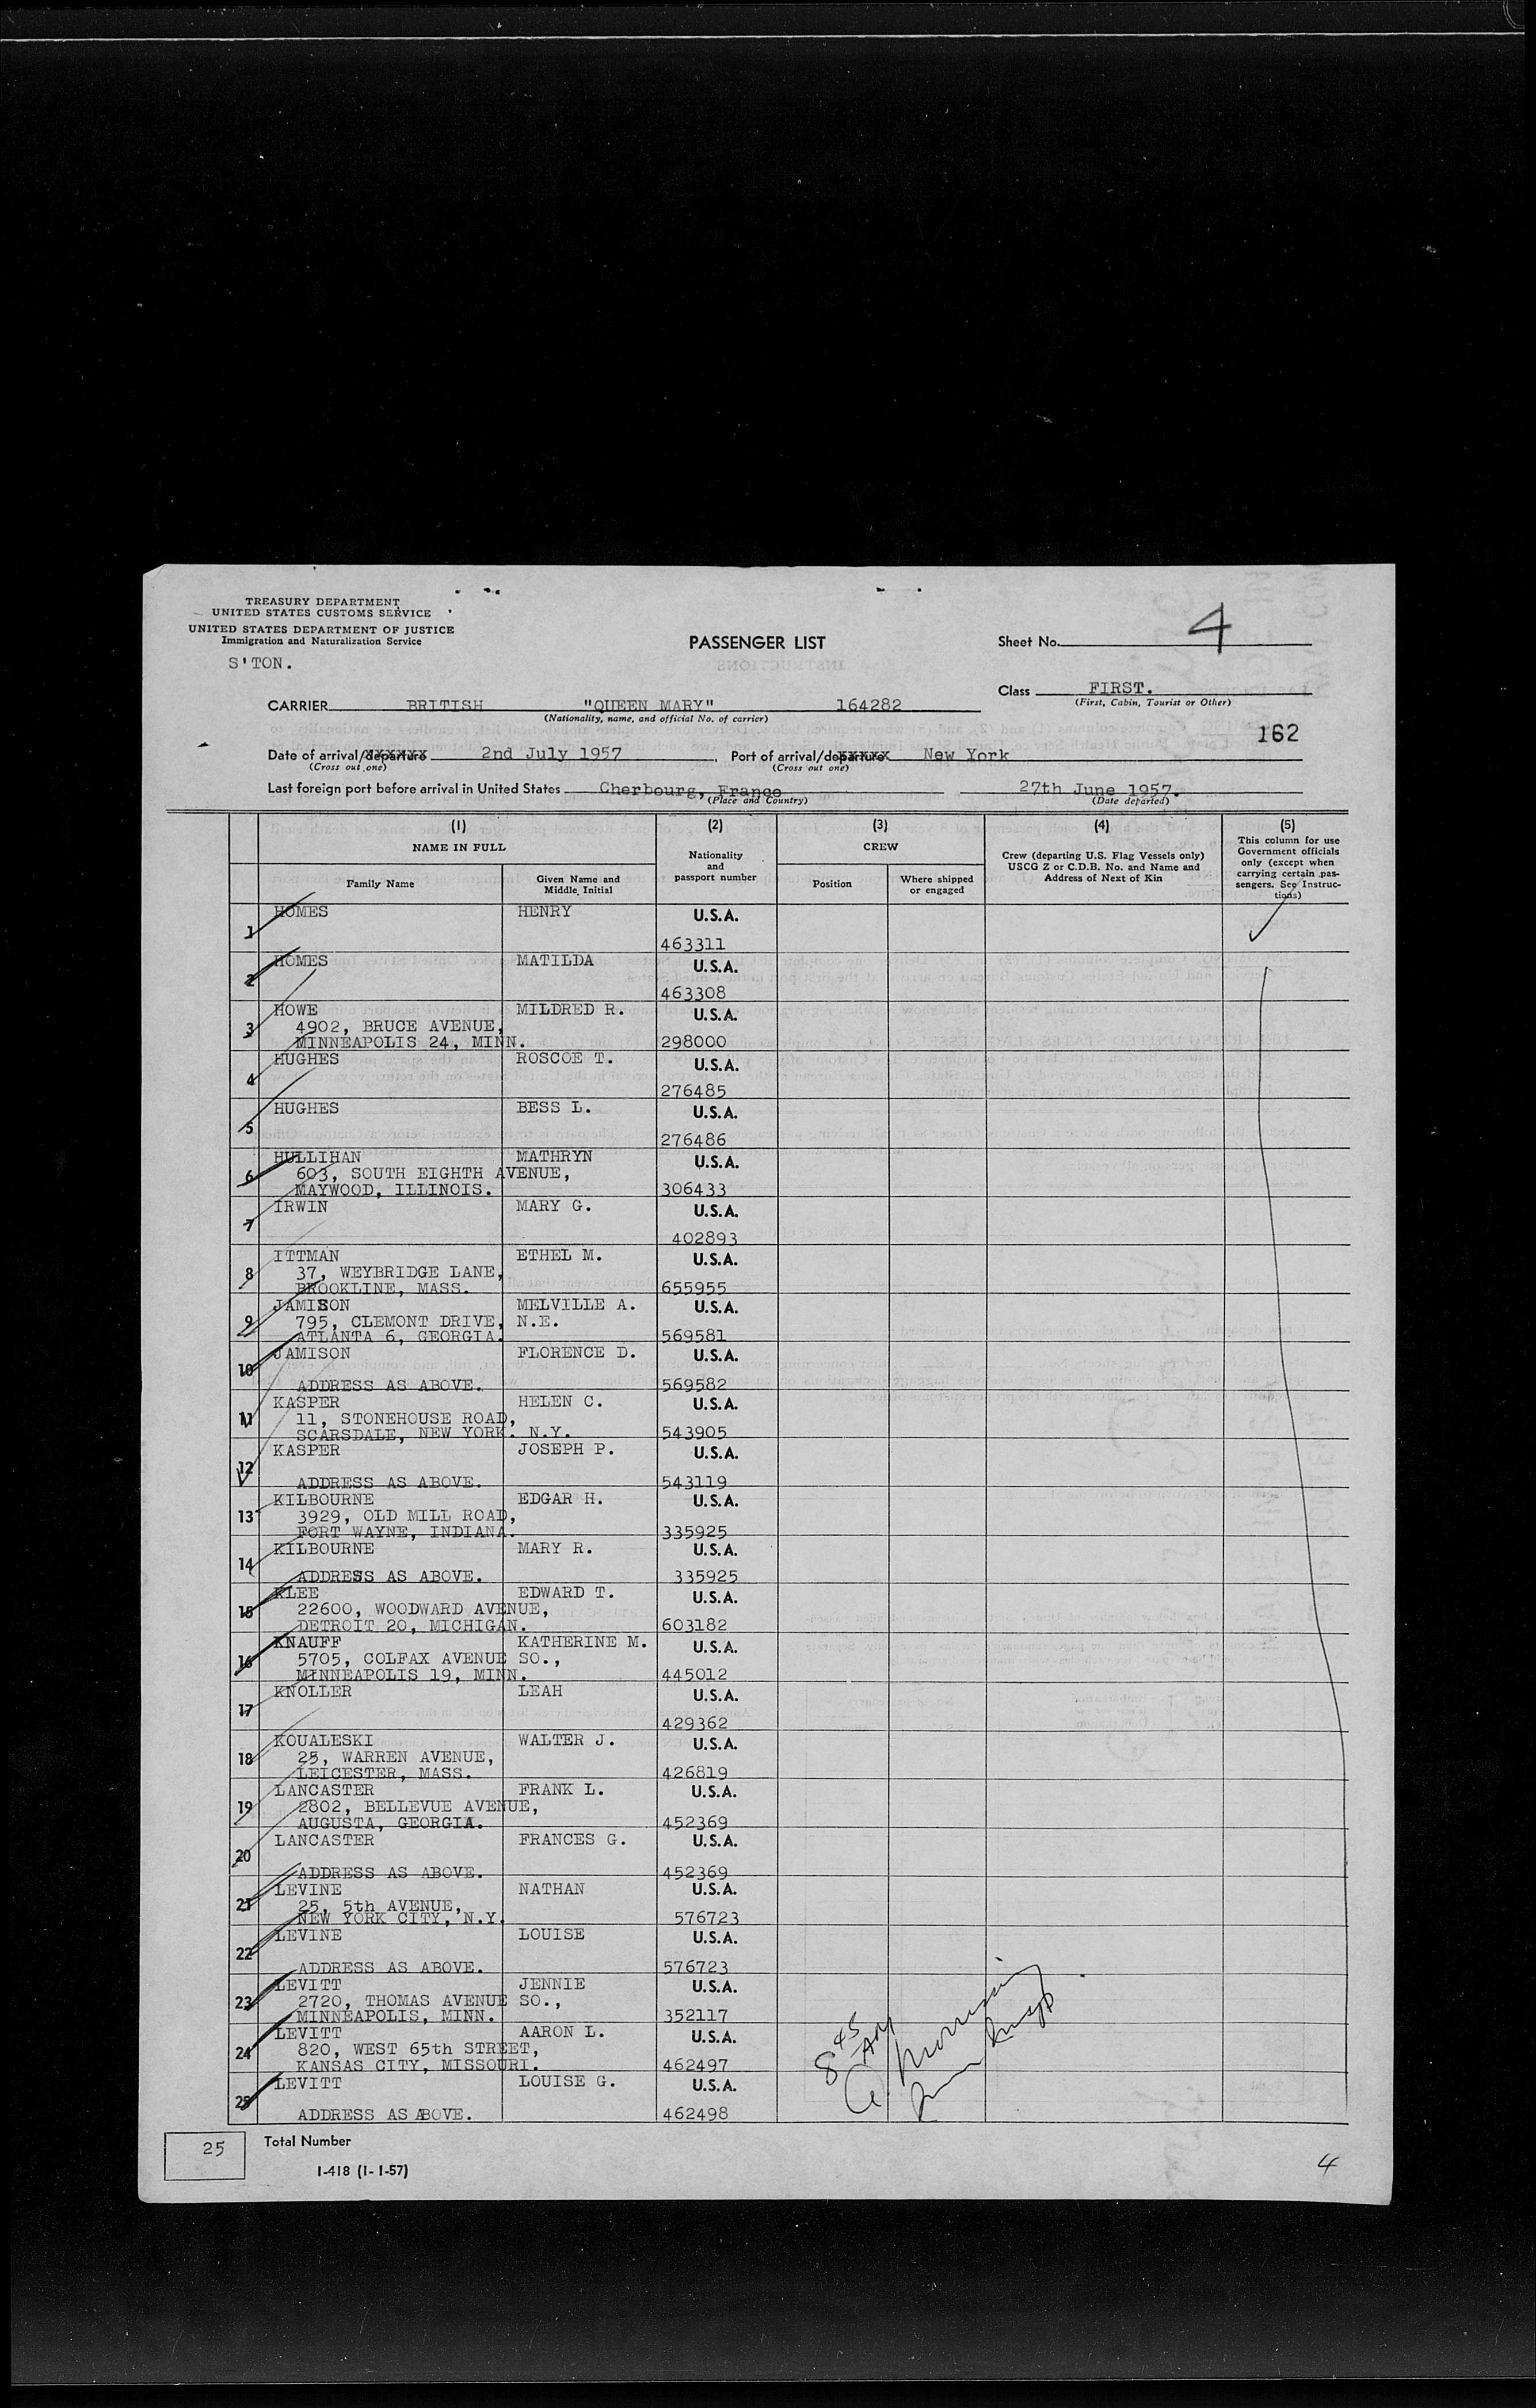 TREASURY DEPARTMENT
UNITED STATES CUSTOMS SERVICE
UNITED STATES DEPARTMENT OF JUSTICE
Immigration and Naturalization Service
S'TON.
PASSENGER LIST
Sheet No. 4
Class FIRST.
(First, Cabin, Tourist or Other)
CARRIER BRITISH "QUEEN MARY" 164282
(Nationality, name, and official No. of carrier)
162
Date of arrival/departure 2nd July 1957 Port of arrival/departure New York
(Cross out one) (Cross out one)
Last foreign port before arrival in United States Cherbourg, France 27th June 1957.
(Place and Country) (Date departed)
(1) (2) (3) (4) (5)
NAME IN FULL
Family Name
Given Name and
Middle Initial
Nationality
and
passport number
CREW
Position
Where shipped
or engaged
Crew (departing U.S. Flag Vessels only)
USCG Z or C.D.B. No. and Name and
Address of Next of Kin
This column for use
Government officials
only (except when
carrying certain pas-
sengers. See Instruc-
tions)
1 HOMES HENRY U.S.A.
463311
2 HOMES MATILDA U.S.A.
463308
3 HOWE MILDRED R. U.S.A.
4902, BRUCE AVENUE,
MINNEAPOLIS 24, MINN. 298000
4 HUGHES ROSCOE T. U.S.A.
276485
5 HUGHES BESS L. U.S.A.
276486
6 HULLIHAN MATHRYN U.S.A.
603, SOUTH EIGHTH AVENUE,
MAYWOOD, ILLINOIS. 306433
7 IRWIN MARY G. U.S.A.
402893
8 ITTMAN ETHEL M. U.S.A.
37, WEYBRIDGE LANE,
BROOKLINE, MASS. 655955
9 JAMISON MELVILLE A. U.S.A.
795, CLEMONT DRIVE, N.E.
ATLANTA 6, GEORGIA. 569581
10 JAMISON FLORENCE D. U.S.A.
ADDRESS AS ABOVE. 569582
11 KASPER HELEN C. U.S.A.
11, STONEHOUSE ROAD,
SCARSDALE, NEW YORK. N.Y. 543905
12 KASPER JOSEPH P. U.S.A.
ADDRESS AS ABOVE. 543119
13 KILBOURNE EDGAR H. U.S.A.
3929, OLD MILL ROAD,
FORT WAYNE, INDIANA. 335925
14 KILBOURNE MARY R. U.S.A.
ADDRESS AS ABOVE. 335925
15 KLEE EDWARD T. U.S.A.
22600, WOODWARD AVENUE,
DETROIT 20, MICHIGAN. 603182
16 KNAUFF KATHERINE M. U.S.A.
5705, COLFAX AVENUE SO.,
MINNEAPOLIS 19, MINN. 445012
17 KNOLLER LEAH U.S.A.
429362
18 KOUALESKI WALTER J. U.S.A.
25, WARREN AVENUE,
LEICESTER, MASS. 426819
19 LANCASTER FRANK L. U.S.A.
2802, BELLEVUE AVENUE,
AUGUSTA, GEORGIA. 452369
20 LANCASTER FRANCES G. U.S.A.
ADDRESS AS ABOVE. 452369
21 LEVINE NATHAN U.S.A.
25, 5th AVENUE,
NEW YORK CITY, N.Y. 576723
22 LEVINE LOUISE U.S.A.
ADDRESS AS ABOVE. 576723
23 LEVITT JENNIE U.S.A.
2720, THOMAS AVENUE SO.,
MINNEAPOLIS, MINN. 352117
24 LEVITT AARON L. U.S.A.
820, WEST 65th STREET,
KANSAS CITY, MISSOURI. 462497
25 LEVITT LOUISE G. U.S.A.
ADDRESS AS ABOVE. 462498
8 45 AM
25 Total Number
I-418 (1-1-57)
4